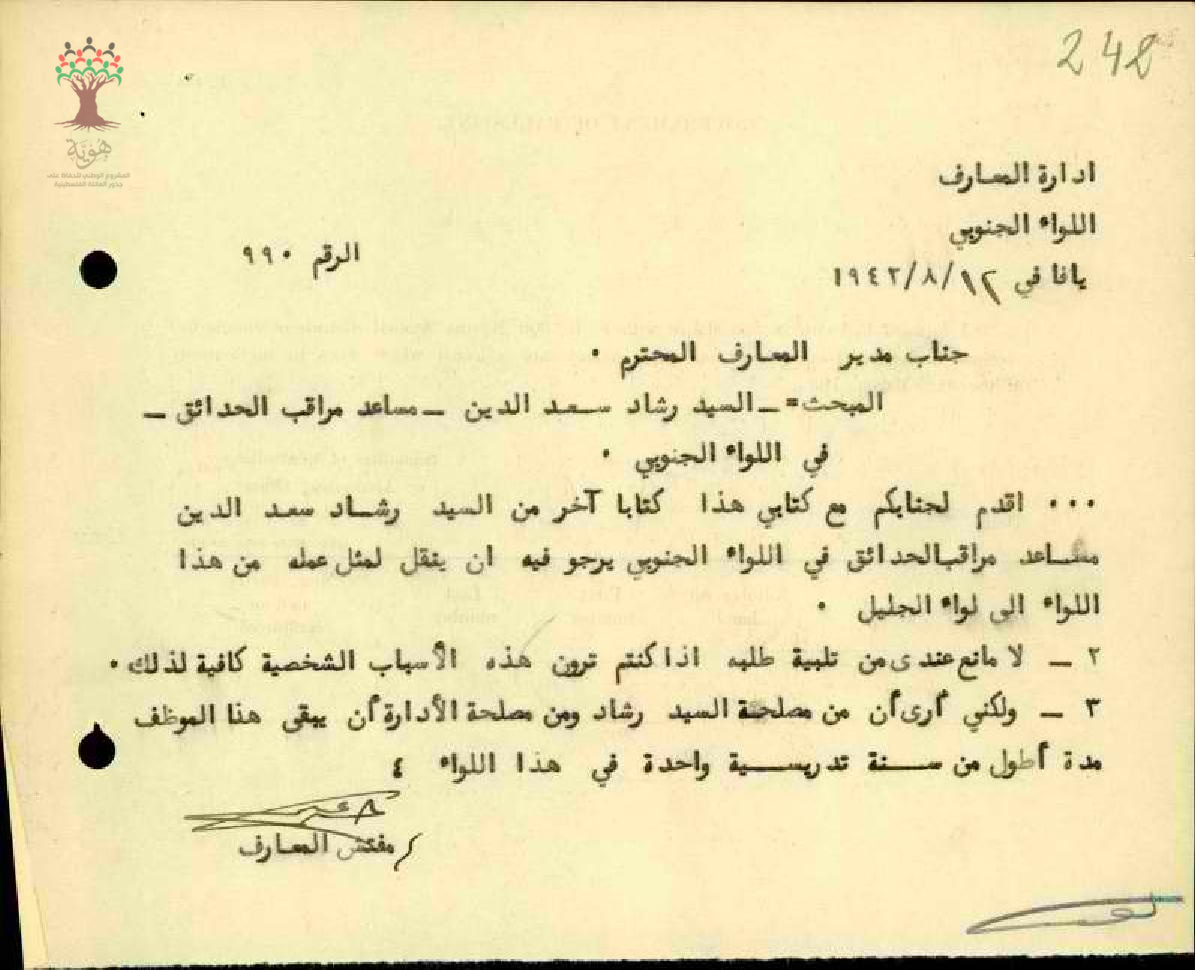 248
هوية
المشروع الوطني للحفاظ على
جذور العائلة الفلسطينية
ادارة المعارف
اللواء الجنوبي
الرقم ٩٩٠
يافا في ١٢/٨/١٩٤٢
جناب مدير المعارف المحترم ٠
المبحث=_ السيد رشاد سعد الدين _ مساعد مراقب الحدائق _
في اللواء الجنوبي ٠
٠٠٠ اقدم لجنابكم مع كتابي هذا كتابا آخر من السيد رشاد سعد الدين
مساعد مراقب الحدائق في اللواء الجنوبي يرجو فيه ان ينقل لمثل عمله من هذا
اللواء الى لواء الجليل ٠
٢ _ لا مانع عندي من تلبية طلبه اذا كنتم ترون هذه الأسباب الشخصية كافية لذلك ٠
٣ _ ولكني أرى أن من مصلحة السيد رشاد ومن مصلحة الأدارة أن يبقى هذا الموظف
مدة أطول من سنة تدريسية واحدة في هذا اللواء ٤
/ مفتش المعارف